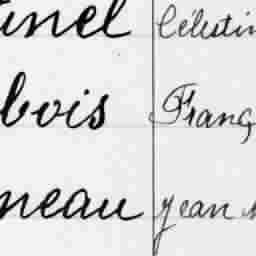 unel Célestin
bois Franç
neau Jean